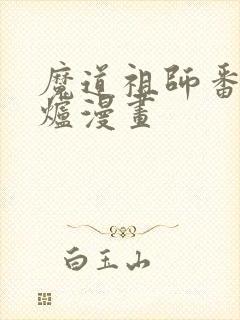 魔道祖師番
爐漫畫
白玉山